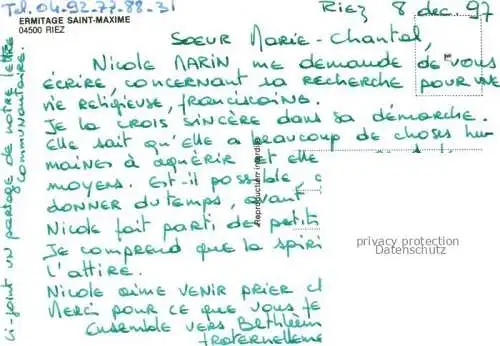 Tel. 04-92-77-88-31
ERMITAGE SAINT-MAXIME
04500 RIEZ
Riez 8 déc. 97
Soeur Marie-Chantal,
Nicole MARIN me demande de vous
écrire, concernant sa recherche pour une
vie religieuse, franciscaine.
Je la crois sincère dans sa démarche.
Elle sait qu'elle a beaucoup de choses hu-
maines à acquérir et elle
moyens. Est-il possible,
donner du temps, avant
Nicole fait parti des petits
Je comprend que la spiri
l'attire.
Nicole aime venir prier c
Merci pour ce que vous fe
Ensemble vers Bethléem
fraternelleme
ci-joint un partage de notre lettre
communautaire.
Reproduction interdite
privacy protection
Datenschutz